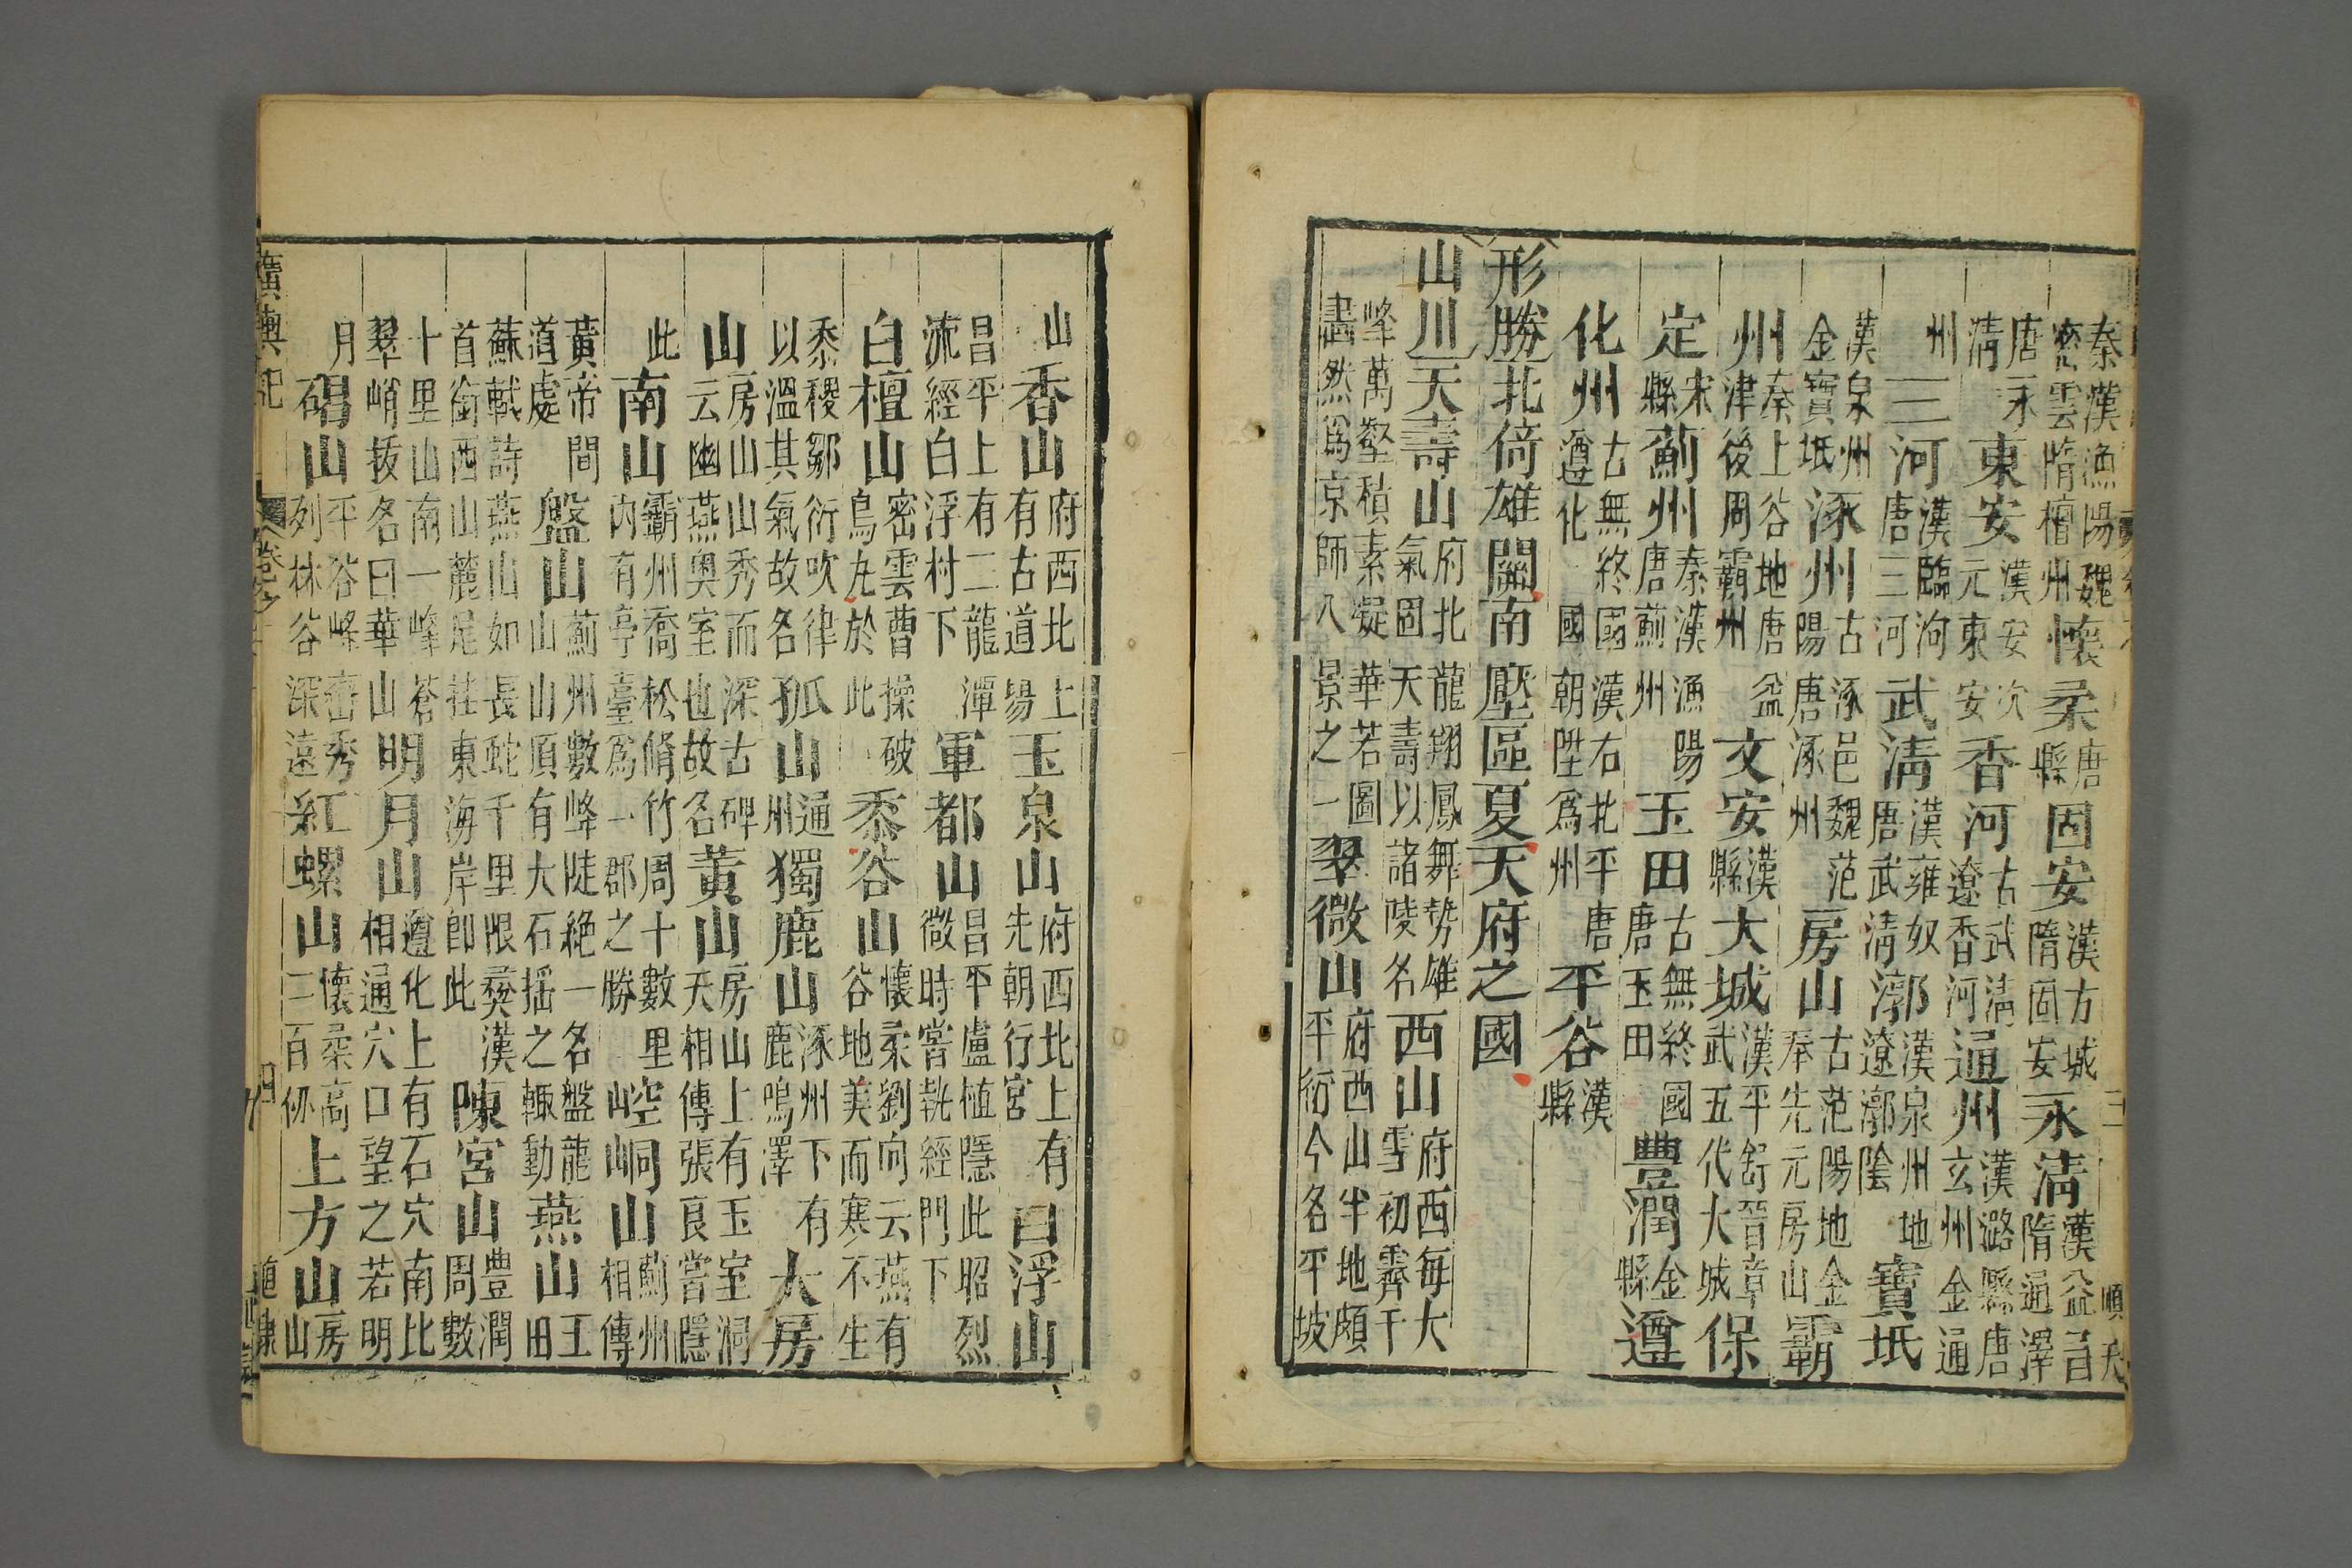 秦漢漁陽魏密雲隋檀州懷柔唐縣固安漢方城隋固安永清漢益昌隋通澤
唐永清東安漢安次元東安香河古武清遼香河通州漢潞縣唐玄州金通
州三河漢臨泃唐三河武清漢雍奴唐武清漷漢泉州地遼漷陰寶坻
漢泉州金寶坻涿州古涿邑魏范陽唐涿州房山古范陽地金奉先元房山霸
州秦上谷地唐益津後周霸州文安漢縣大城漢平舒晉章武五代大城保
定宋縣薊州秦漢漁陽唐薊州玉田古無終國唐玉田豐潤金縣遵
化州古無終國漢右北平唐遵化國朝陞爲州平谷漢縣
形勝北倚雄關南壓區夏天府之國
山川天壽山府北龍翔鳳舞勢雄氣固天壽以諸陵名西山府西每大雪初霽千
峰萬壑積素凝華若圖畫然爲京師八景之一翠微山府西山半地頗平衍今名平坡
山香山府西北上有古道場玉泉山府西北上有先朝行宮白浮山
昌平上有二龍潭流經白浮村下軍都山昌平盧植隱此昭烈微時嘗執經門下
白檀山密雲曹操破烏丸於此黍谷山懷柔劉向云燕有谷地美而寒不生
黍稷鄒衍吹律以溫其氣故名孤山通州獨鹿山涿州下有鹿鳴澤大房
山房山山秀而深古碑云幽燕奥室也故名黃山房山上有玉室洞天相傳張良嘗隱
此南山霸州喬松脩竹周十數里內有亭臺爲一郡之勝崆峒山薊州相傳
黃帝問道處盤山薊州數峰陡絶一名盤龍山山頂有大石揺之輒動燕山玉田
蘇軾詩燕山如長蛇千里限夷漢首銜西山麓尾挂東海岸卽此陳宮山豐潤周數
十里山南一峰蒼翠峭拔名曰華山明月山遵化上有石穴南北相通穴口望之若明
月碣山平谷峰巒秀列林谷深遠紅螺山懷柔高二百仞上方山房山
廣輿記